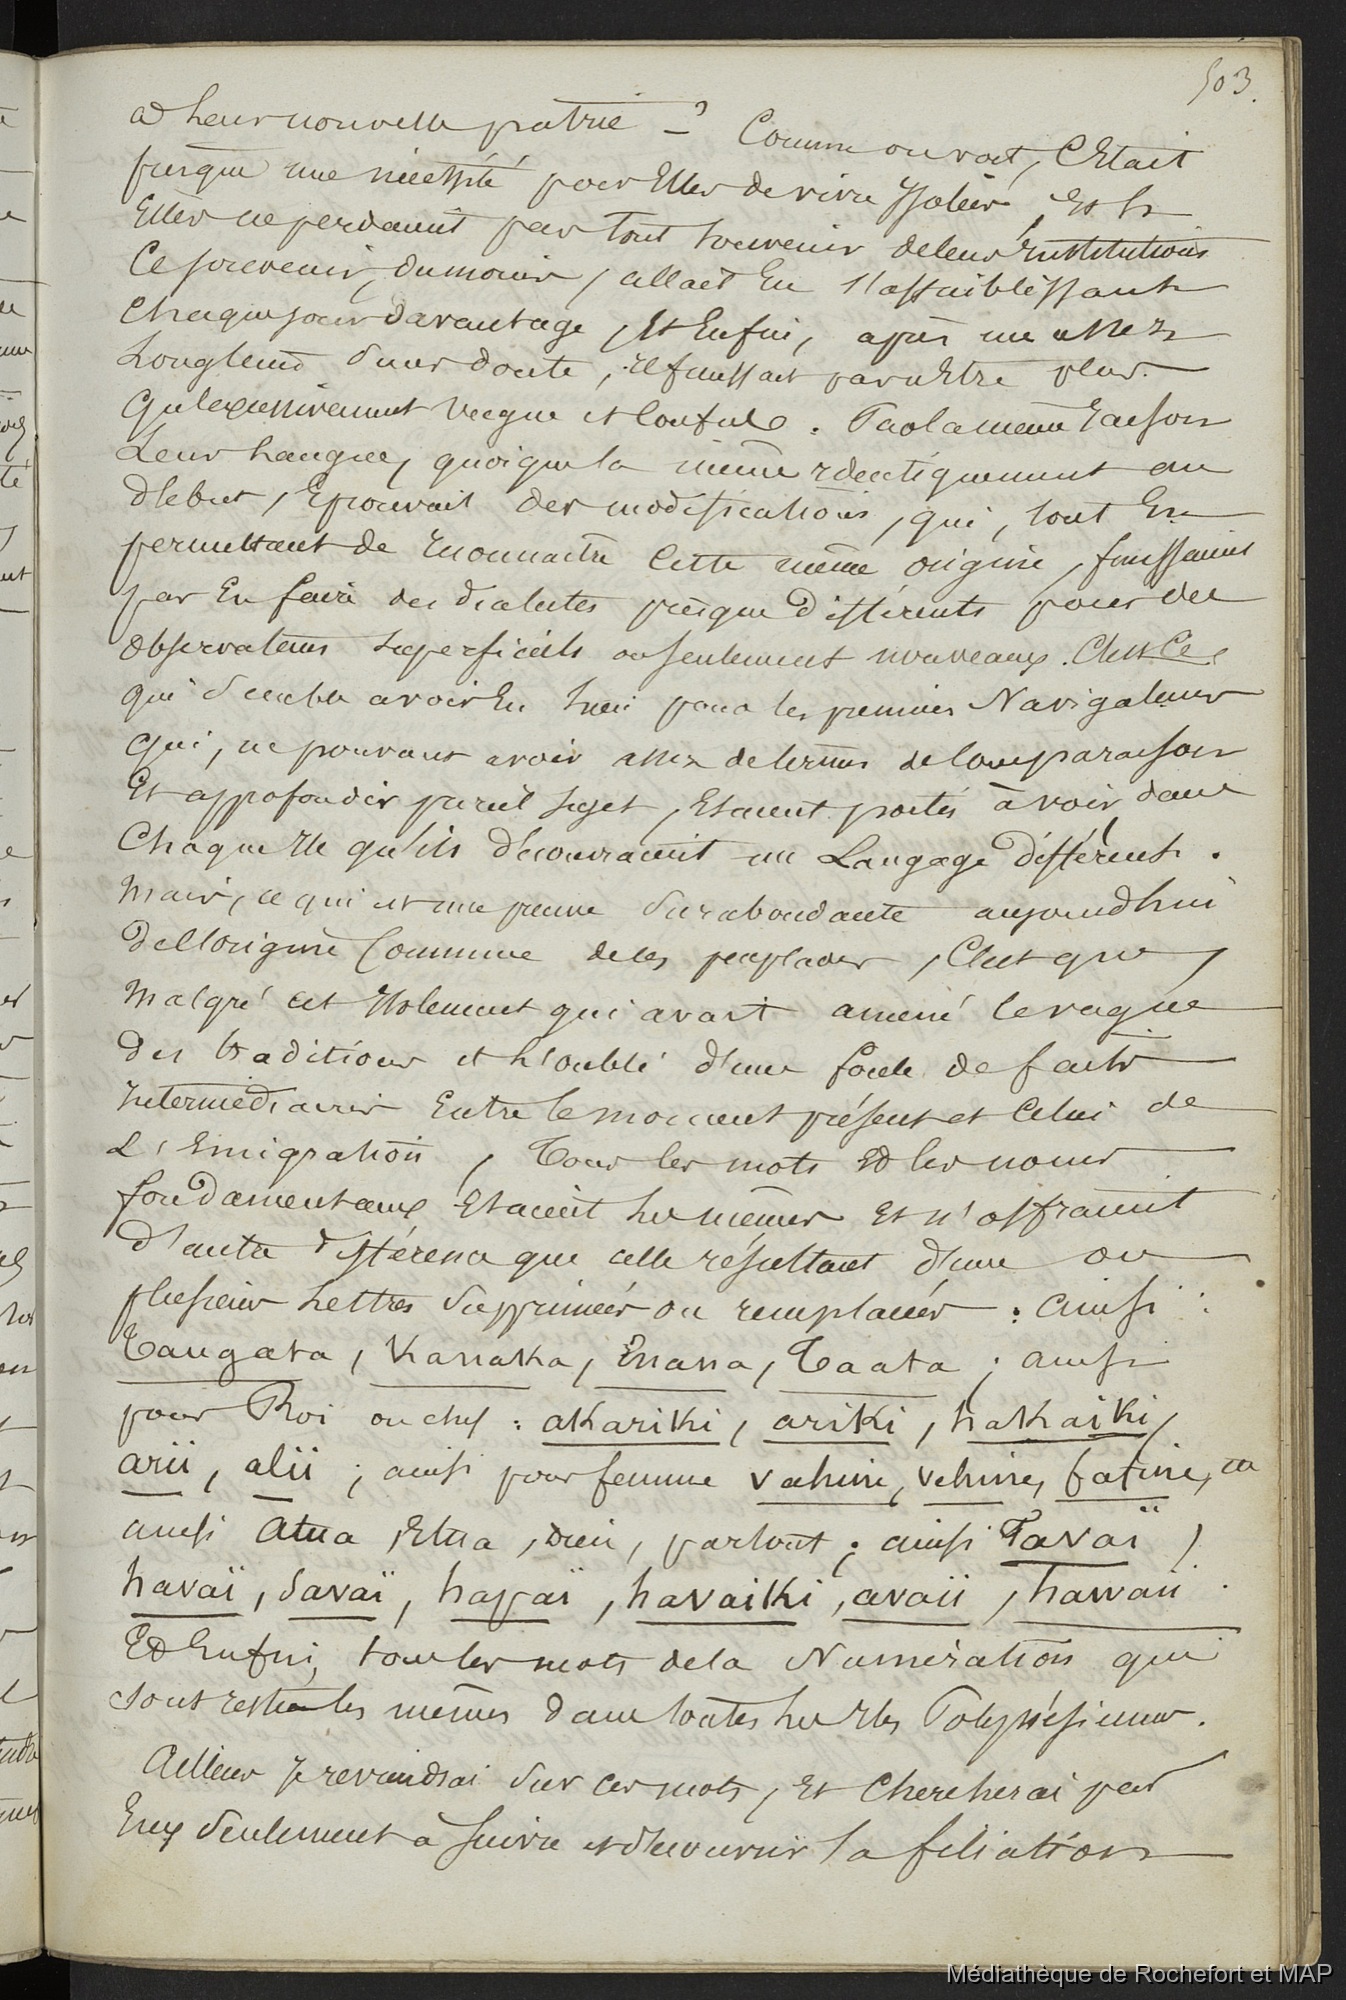 503.
a leur nouvelle patrie - ? Comme on voit, C'Etait
presque une nécessité pour Elles de vivre Isolées, et si
Elles ne perdaient pas tout souvenir de leurs institutions
Ce souvenir, du moins, allait En s'affaiblissant
Chaque jour davantage, Et Enfin, après un assez
Long temps sans doute, il finissait par n'Etre plus
Qu'excessivement vague et Confus. Par la même raison
Leur Langue, quoique la même identiquement au
début, Eprouvait des modifications, qui, tout En
permettant de reconnaître Cette même origine, finissaient
par En faire des dialectes presque différents pour des
observateurs superficiels ou seulement nouveaux. C'est Ce
qui semble avoir Eu lieu pour les premiers Navigateurs
qui, ne pouvant avoir assez de termes de Comparaison
Et approfondir pareil sujet, Etaient portés à voir dans
Chaque Ile qu'ils découvraient un Langage différent.
Mais, ce qui est une preuve surabondante aujourd'hui
de l'origine Commune de ces peuplades, C'est que,
Malgré cet Isolement qui avait amené le vague
des traditions et l'oubli d'une foule de faits
Intermédiaires Entre le moment présent et Celui de
L'Emigration, Tous les mots Et les noms
fondamentaux Etaient les mêmes Et n'offraient
d'autre différence que celle résultant d'une ou
plusieurs Lettres supprimées ou remplacées : Ainsi :
Tangata, Kanaka, Enana, Taata ; ainsi
pour Roi ou chef : akariki, ariki, hakaiki,
arii, alii ; ainsi pour femme vahine, vehine, fafine, ca
ainsi Atua, Etua, dieu, partout ; ainsi Tavaï,
havaï, savaï, hapaï, havaiki, avaii, hawaii.
Et Enfin, tous les mots de la Numération qui
sont restés les mêmes dans toutes les Iles Polynésiennes.
Ailleurs Je reviendrai sur ces mots, Et Chercherai par
Eux seulement à suivre et découvrir la filiation
Médiathèque de Rochefort et MAP